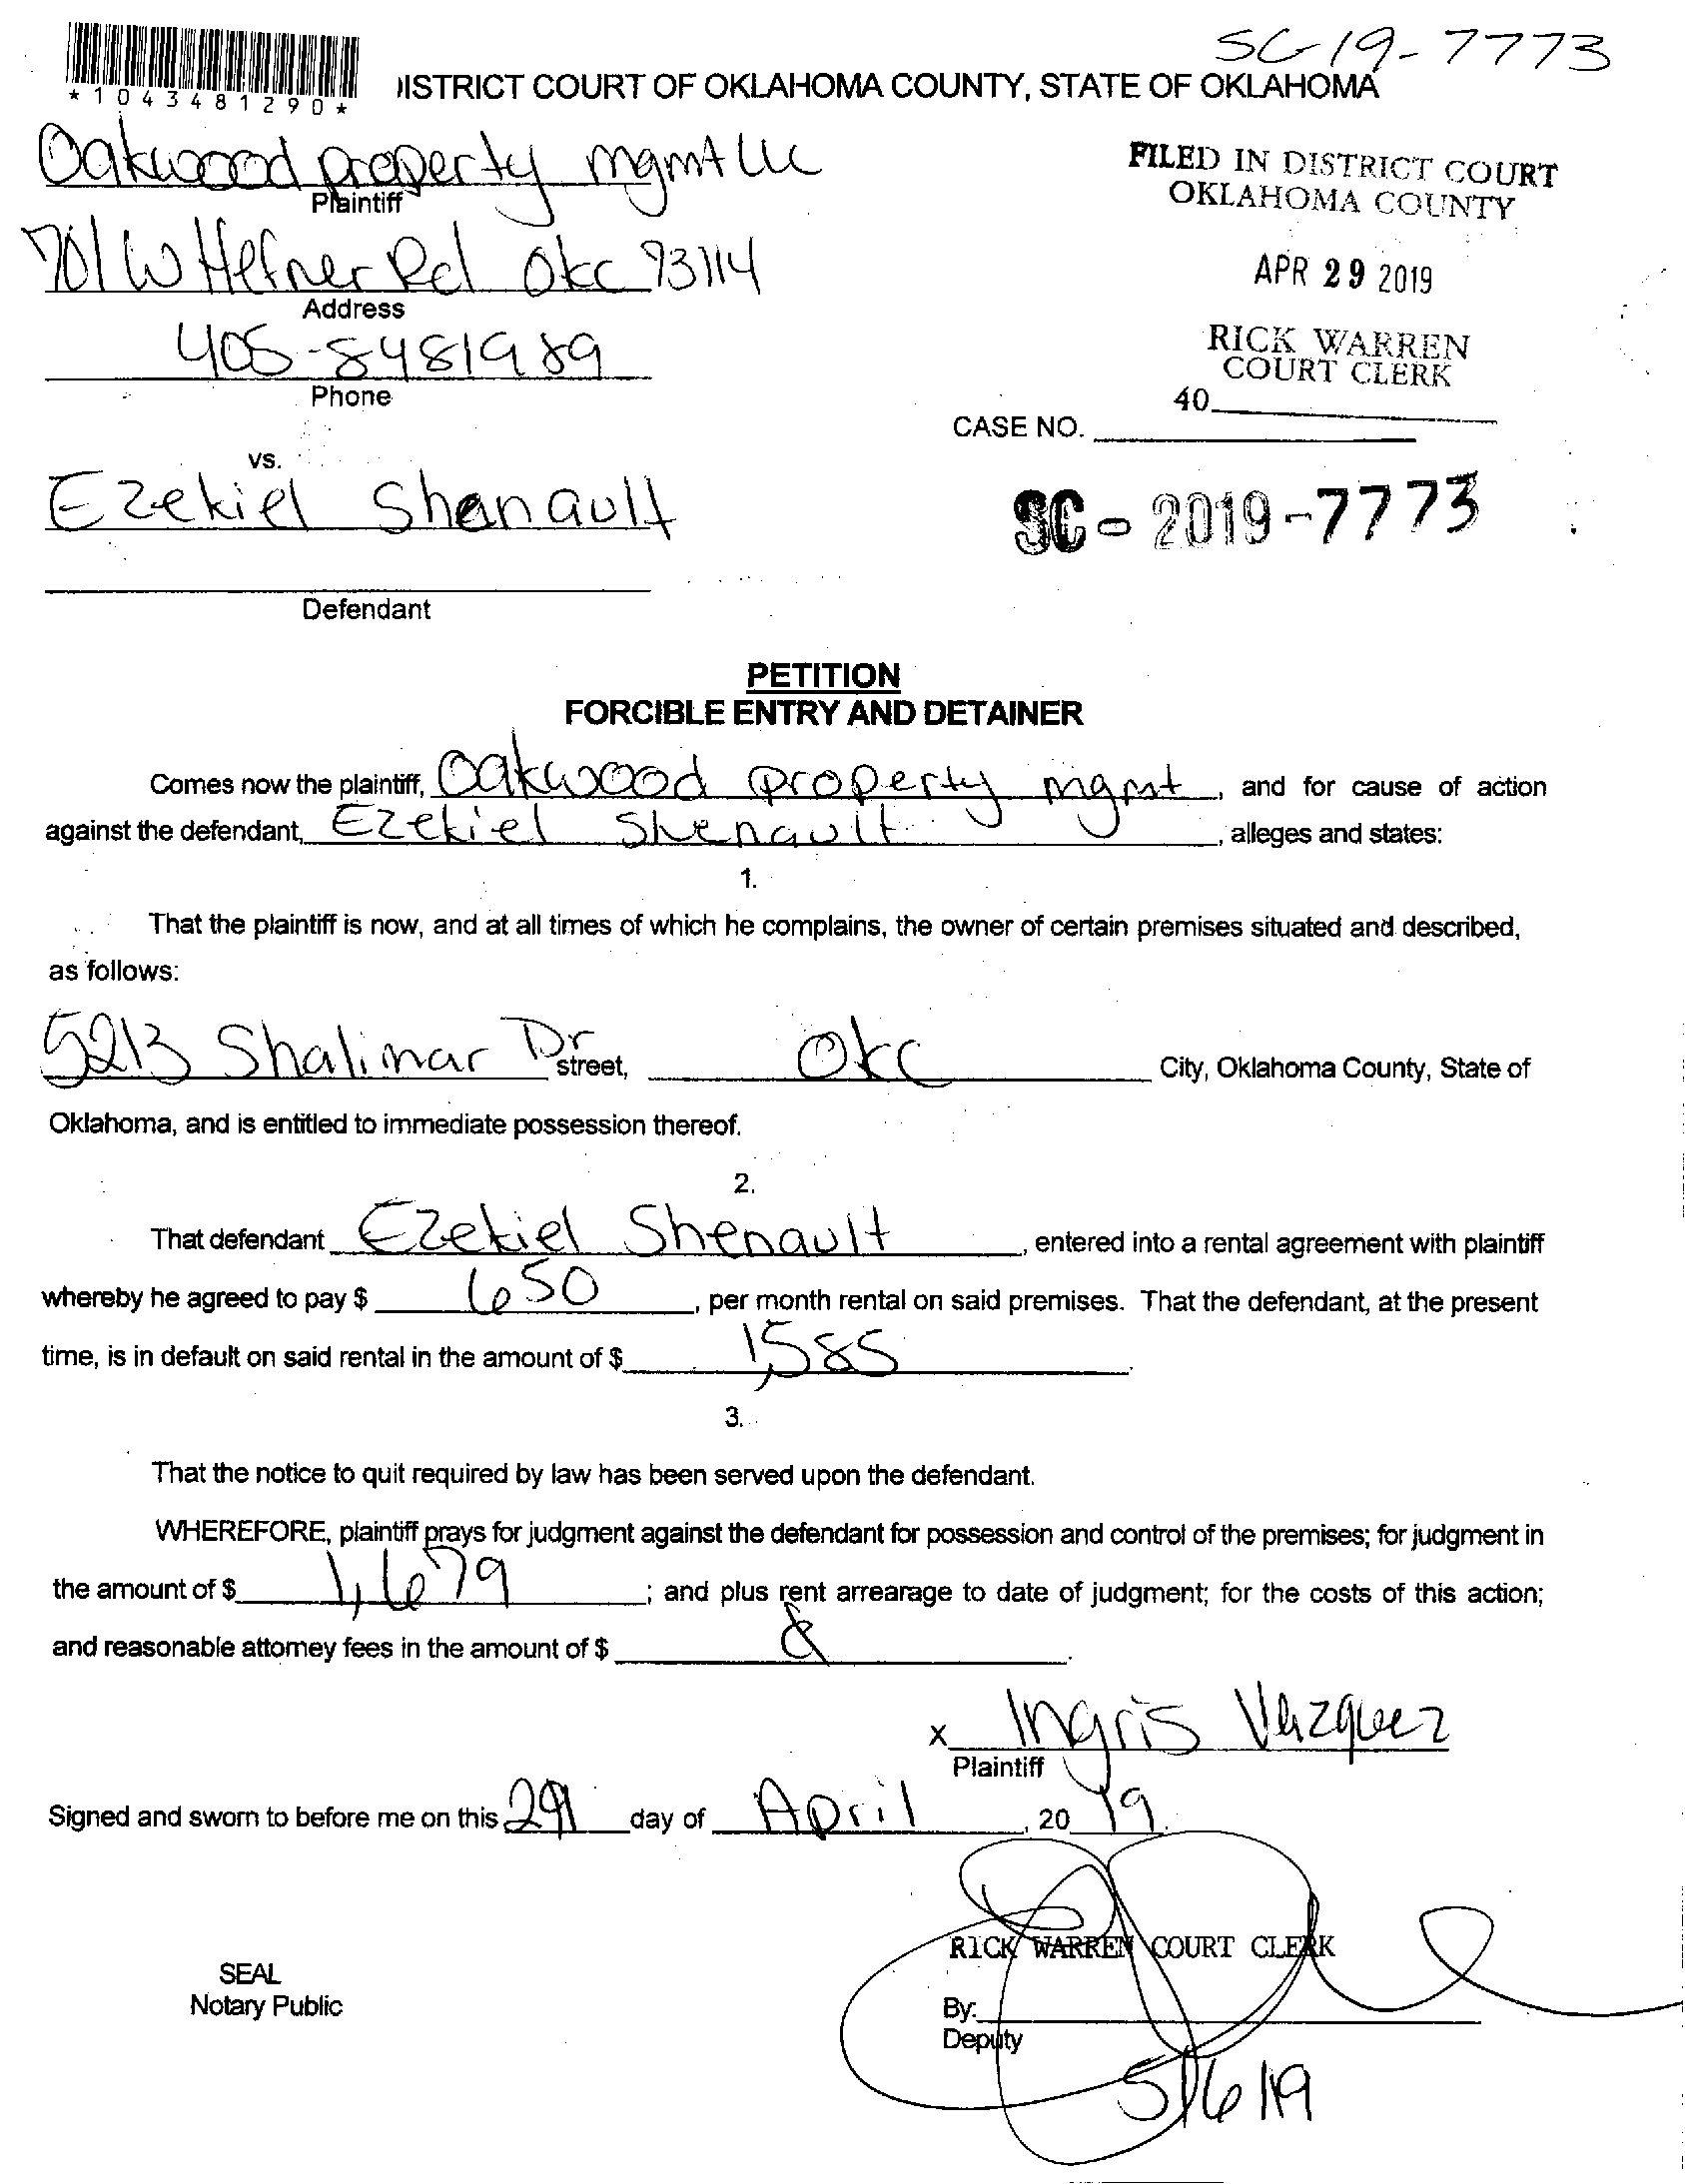 SC-19-7773
*1043481290*
ISTRICT COURT OF OKLAHOMA COUNTY, STATE OF OKLAHOMA
Oakwood property mgmt llc
Plaintiff
701 W Hefner Rd Okc 73114
Address
405-8481989
Phone
FILED IN DISTRICT COURT
OKLAHOMA COUNTY
APR 29 2019
RICK WARREN
COURT CLERK
40
CASE NO.
SC-2019-7773
vs.
Ezekiel Shenault
Defendant
PETITION
FORCIBLE ENTRY AND DETAINER
Comes now the plaintiff, Oakwood property mgmt, and for cause of action
against the defendant, Ezekiel Shenault, alleges and states:
1.
That the plaintiff is now, and at all times of which he complains, the owner of certain premises situated and described,
as follows:
5213 Shalimar Dr street, Okc City, Oklahoma County, State of
Oklahoma, and is entitled to immediate possession thereof.
2.
That defendant Ezekiel Shenault, entered into a rental agreement with plaintiff
whereby he agreed to pay $ 650, per month rental on said premises. That the defendant, at the present
time, is in default on said rental in the amount of $ 1,585.
3.
That the notice to quit required by law has been served upon the defendant.
WHEREFORE, plaintiff prays for judgment against the defendant for possession and control of the premises; for judgment in
the amount of $ 1,679; and plus rent arrearage to date of judgment; for the costs of this action;
and reasonable attorney fees in the amount of $
x Ingris Vazquez
Plaintiff
Signed and sworn to before me on this 29 day of April, 20 19.
RICK WARREN COURT CLERK
SEAL
Notary Public
By:
Deputy
5/6/19